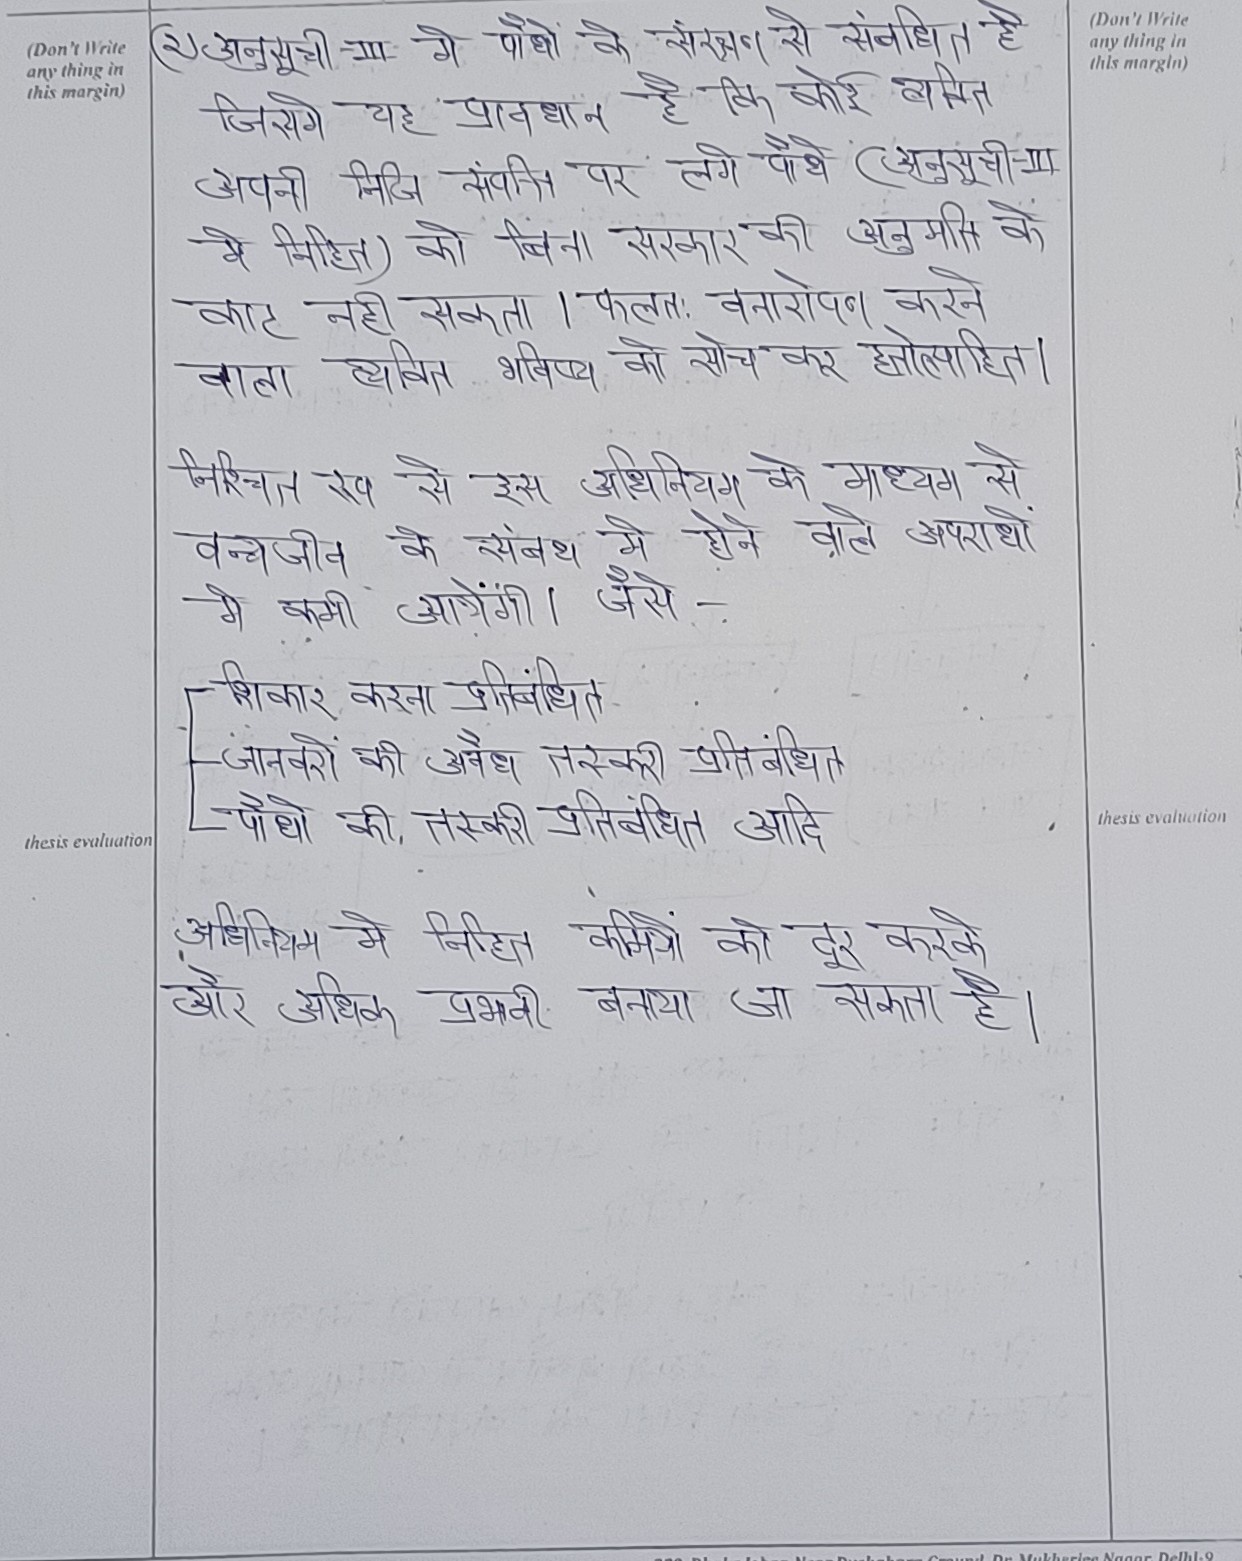 (Don't Write
any thing in
this margin)
(Don't Write
any thing in
this margin)
(२) अनुसूची-III में पौधों के संरक्षण से संबंधित है
जिसमें यह प्रावधान है कि कोई व्यक्ति
अपनी निजि संपत्ति पर लगे पौधे (अनुसूची-III
मे निहित) को बिना सरकार की अनुमति के
काट नही सकता । फलतः वनारोपण करने
वाला व्यक्ति भविष्य को सोच कर हतोत्साहित।
निश्चित रूप से इस अधिनियम के माध्यम से
वन्यजीव के संबध मे होने वाले अपराधों
मे कमी आयेंगी। जैसे -
शिकार करना प्रतिबंधित
जानवरों की अवैध तस्करी प्रतिबंधित
पौधों की तस्करी प्रतिबंधित आदि
thesis evaluation
thesis evaluation
अधिनियम मे निहित कमियों को दूर करके
और अधिक प्रभावी बनाया जा सकता है।